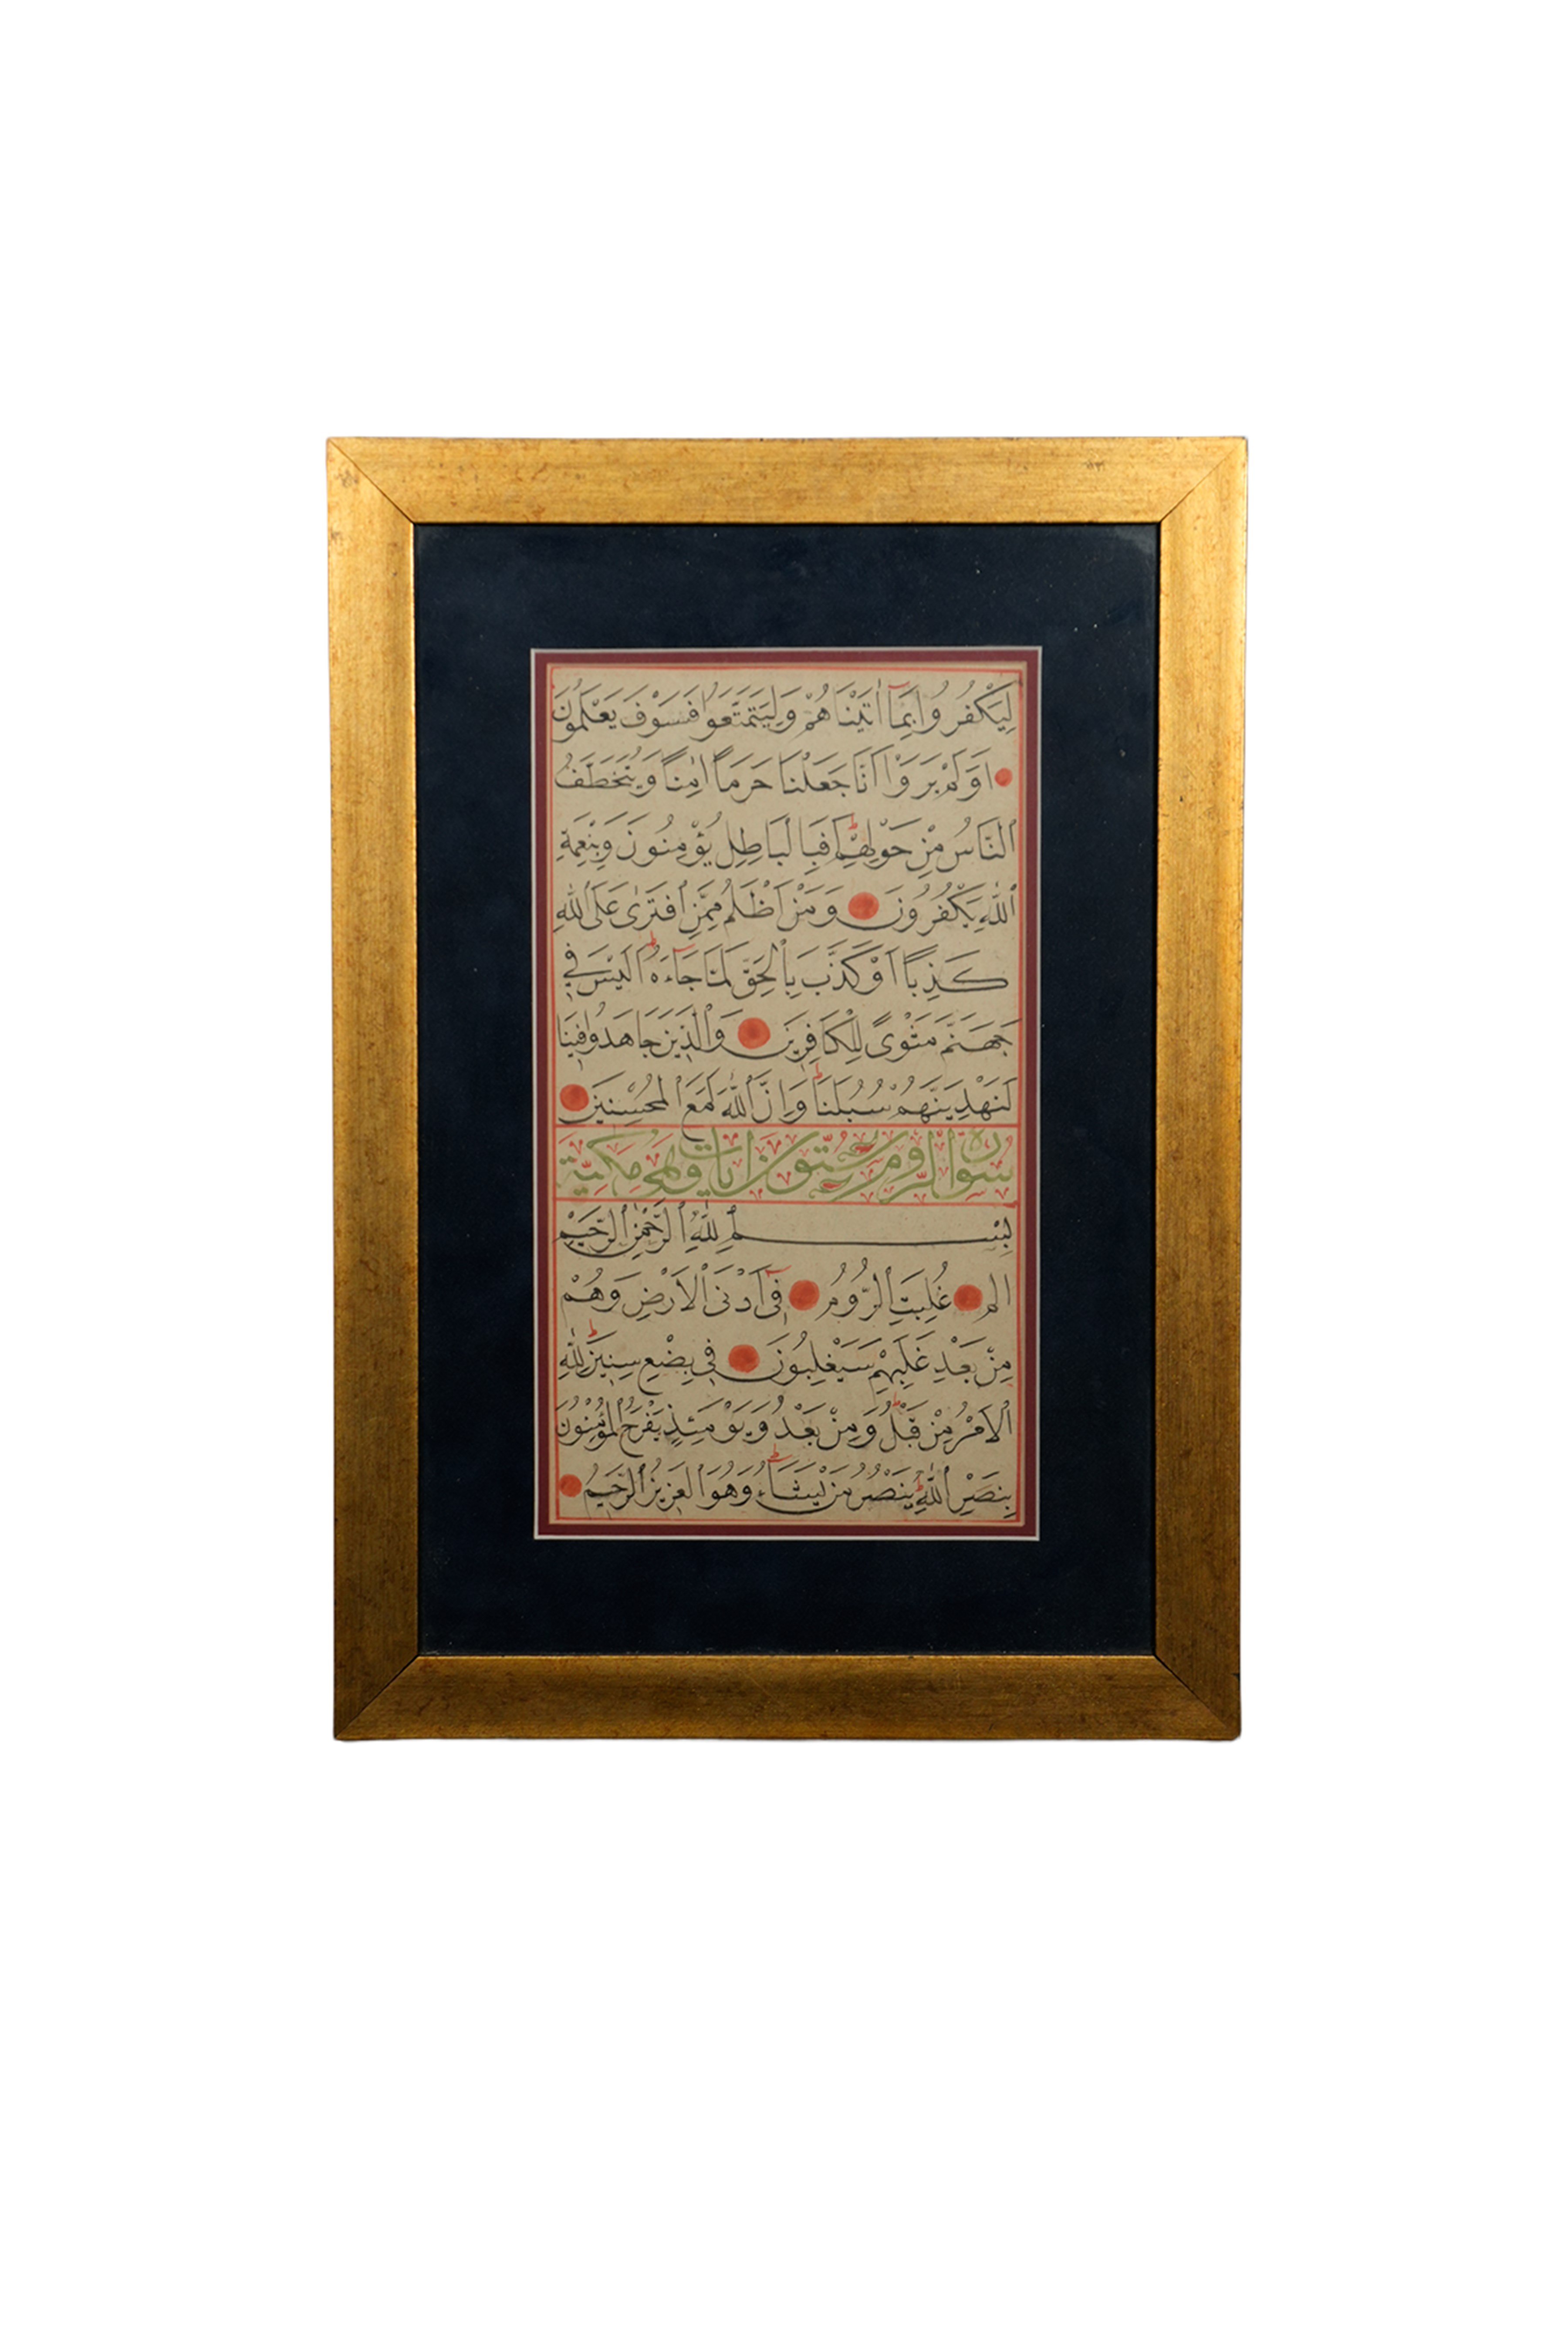 لِيَكْفُرُوا بِمَآ اٰتَيْنَاهُمْ وَلِيَتَمَتَّعُوا فَسَوْفَ يَعْلَمُونَ
اَوَلَمْ يَرَوْا اَنَّا جَعَلْنَا حَرَمًا اٰمِنًا وَيُتَخَطَّفُ
النَّاسُ مِنْ حَوْلِهِمْ اَفَبِالْبَاطِلِ يُؤْمِنُونَ وَبِنِعْمَةِ
اللّٰهِ يَكْفُرُونَ وَمَنْ اَظْلَمُ مِمَّنِ افْتَرٰى عَلَى اللّٰهِ
كَذِبًا اَوْ كَذَّبَ بِالْحَقِّ لَمَّا جَآءَهُ اَلَيْسَ فِي
جَهَنَّمَ مَثْوًى لِلْكَافِرِينَ وَالَّذِينَ جَاهَدُوا فِينَا
لَنَهْدِيَنَّهُمْ سُبُلَنَا وَاِنَّ اللّٰهَ لَمَعَ الْمُحْسِنِينَ
سورة الروم ستون ايات وهي مكية
بِسْمِ اللّٰهِ الرَّحْمٰنِ الرَّحِيمِ
الم غُلِبَتِ الرُّومُ فِىٓ اَدْنَى الْاَرْضِ وَهُمْ
مِنْ بَعْدِ غَلَبِهِمْ سَيَغْلِبُونَ فِي بِضْعِ سِنِينَ لِلّٰهِ
الْاَمْرُ مِنْ قَبْلُ وَمِنْ بَعْدُ وَيَوْمَئِذٍ يَفْرَحُ الْمُؤْمِنُونَ
بِنَصْرِ اللّٰهِ يَنْصُرُ مَنْ يَشَآءُ وَهُوَ الْعَزِيزُ الرَّحِيمُ